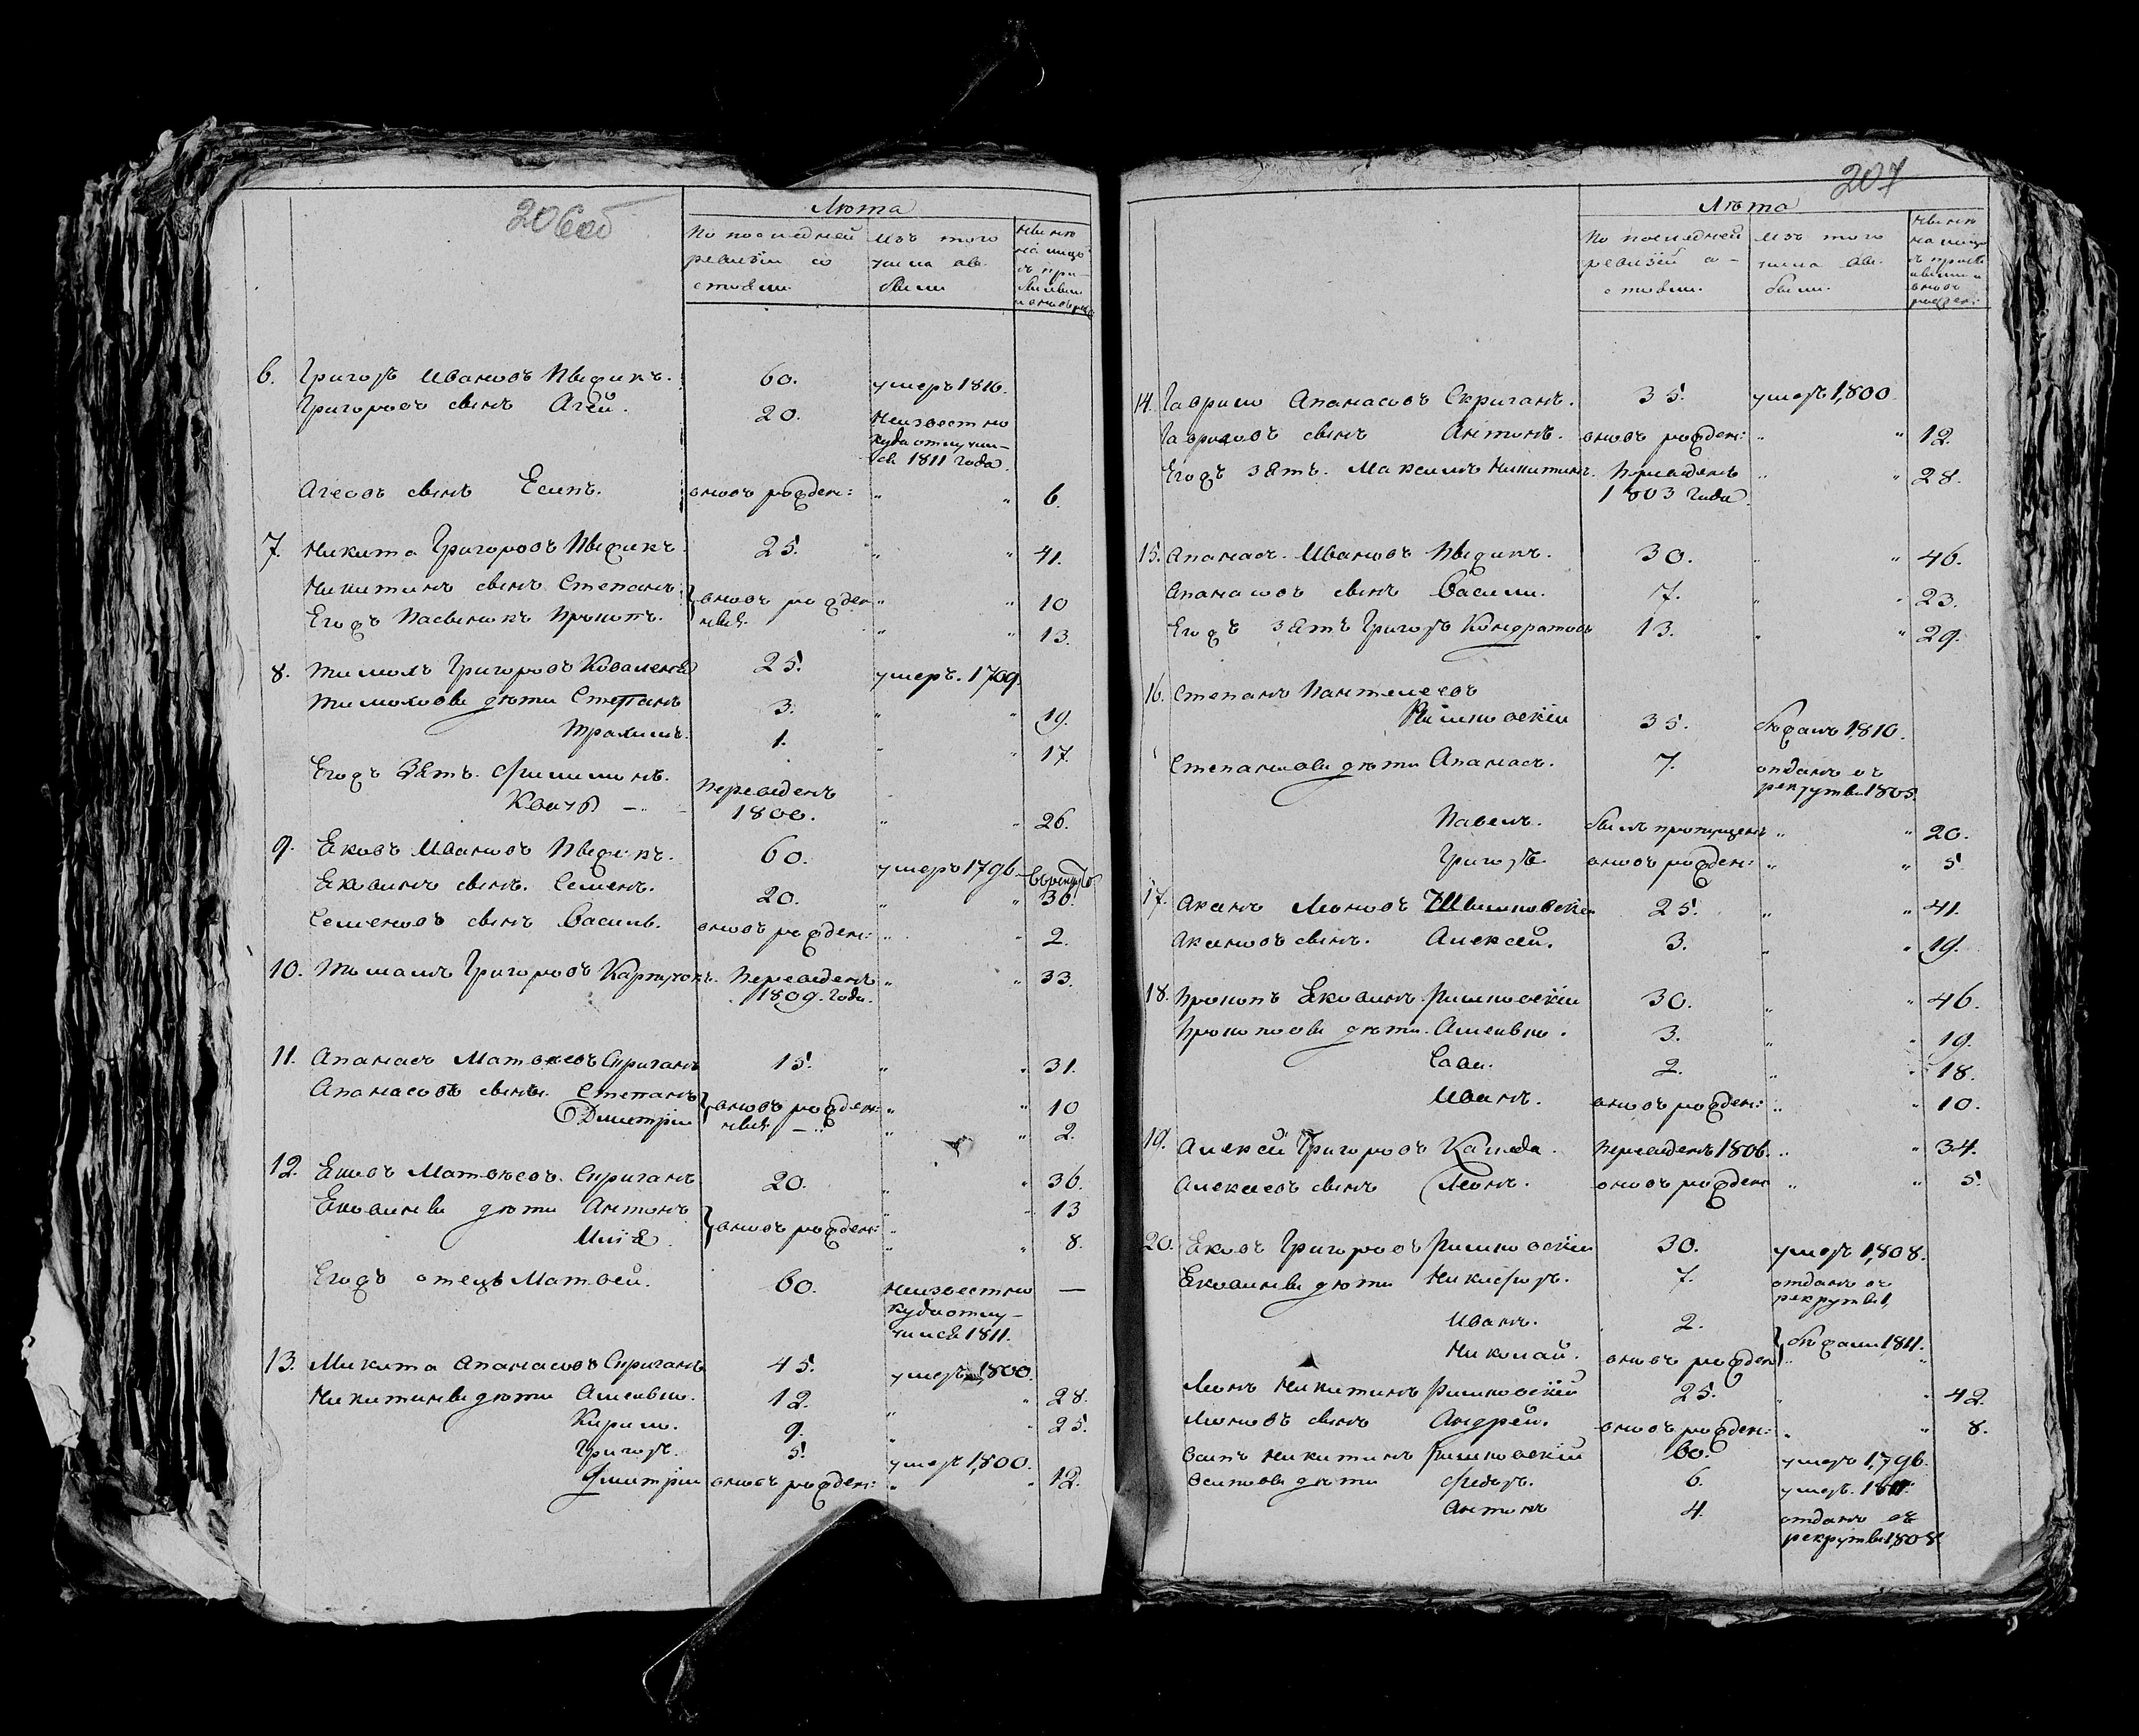 206об
Лѣта
По последней
ревизіи со
стояли
Изъ того
числа вы
были
Нынѣ
на лицо
съ при
бывши
и вновь рож
6. Григоръ Ивановъ 60. умеръ 1810.
Григоровъ сынъ Агей. 20. Неизвестно
куда отлучил-
ся 1811 года.
Агеевъ сынъ Есипъ. вновь рожден: " " 6.
7. Никита Григоровъ 25. " " 41.
Никитинъ сынъ Степанъ вновь рожден " " 10
Егожъ Пасынокъ Прокопъ. ныя. " " 13.
8. Тимохъ Григоровъ 25. умеръ. 1799.
Тимохови дѣти Степанъ 3. " " 19.
Трахимъ. 1. " " 17.
Егожъ Зять. Филимонъ. Переведенъ
1800. " " 26.
9. Яковъ Ивановъ 60. умеръ 1796
Яковинъ сынъ. Семенъ. 20. " " 36.
Семеновъ сынъ Василь. вновь рожден: " " 2.
10. Григоровъ Переведенъ " " 33.
1809. года.
11. Апанасъ Матвеевъ Скриганъ 15. " " 31.
Апанасовъ сыны. Степанъ вновь рожден: " " 10
Дмитрій ныя — " " 2.
12. Яковъ Матвѣевъ. Скриганъ 20. " " 36.
Яковинви дѣти Антонъ вновь рожден: " " 13
Илія. " " 8.
Егожъ отецъ Матвей. 60. Неизвестно —
куда отлу-
чился 1811.
13. Микита Апанасовъ Скриганъ 45. умеръ 1800.
Никитинви дѣти Алексѣй. 12. " " 28.
Кирило. 9. " " 25.
Григоръ. 5. умеръ 1800.
Дмитрій вновь рожден: " " 12.
207
Лѣта
По последней
ревизіи со-
стояли.
Изъ того
числа вы
были.
Нынѣ
на лицо
съ приб
ывшими
вновь
рожден:
14. Гаврило Апанасовъ Скриганъ. 35. умеръ 1800.
Гавриловъ сынъ Антонъ. вновь рожден: " " 12.
Егожъ зять. Максимъ Никитинъ. Переведенъ " " 28.
1803 года.
15. Апанасъ. Ивановъ 30. " " 46.
Апанасовъ сынъ Васили. 7. " " 23.
Егожъ зять Григоръ Кондратовъ 13. " " 29.
16. Степанъ Пантелеевъ
35. бѣжалъ 1810.
Степановви дѣти Апанасъ. 7. отданъ въ
рекруты 1805.
Павелъ. былъ пропущенъ " " 20.
Григоръ. вновь рожден: " " 5.
17. Леоновъ 25. " " 41.
сынъ. Алексей. 3. " " 19.
18. Прокопъ Яковинъ 30. " " 46.
Прокопови дѣти. 3. " " 19.
Сава. 2. " " 18.
Иванъ. вновь рожден: " " 10.
19. Алексей Григоровъ Каледа. Переведенъ 1806. " " 34.
Алексеевъ сынъ Леонъ. вновь рожден " " 5.
20. Яковъ Григоровъ 30. умеръ 1808.
Яковинви дѣти Никифоръ. 7. отданъ въ
рекруты
Иванъ. 2. бѣжали 1811.
Николай. вновь рожден " "
Леонъ Никитинъ 25. " " 42.
Леоновъ сынъ Андрей. вновь рожден: " " 8.
Осипъ Никитинъ 60. умеръ 1796.
Осипови дѣти Федоръ. 6. умеръ. 1811.
Антонъ 4. отданъ въ
рекруты 1808